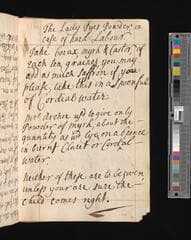 The Lady Dyes Powder, in
Case of hard Labour.
Take borax myrh & Castor, of
each ten graines you may
add as much saffron if you
please, take this in a spoonful
of Cordial water
Mrs Archer us'd to give only
Powder of myrh, about the
quantity as wd ly on a
in burnt Claret or Cordal
water.
Neither of these are to be given
unless your are sure the
child comes right.